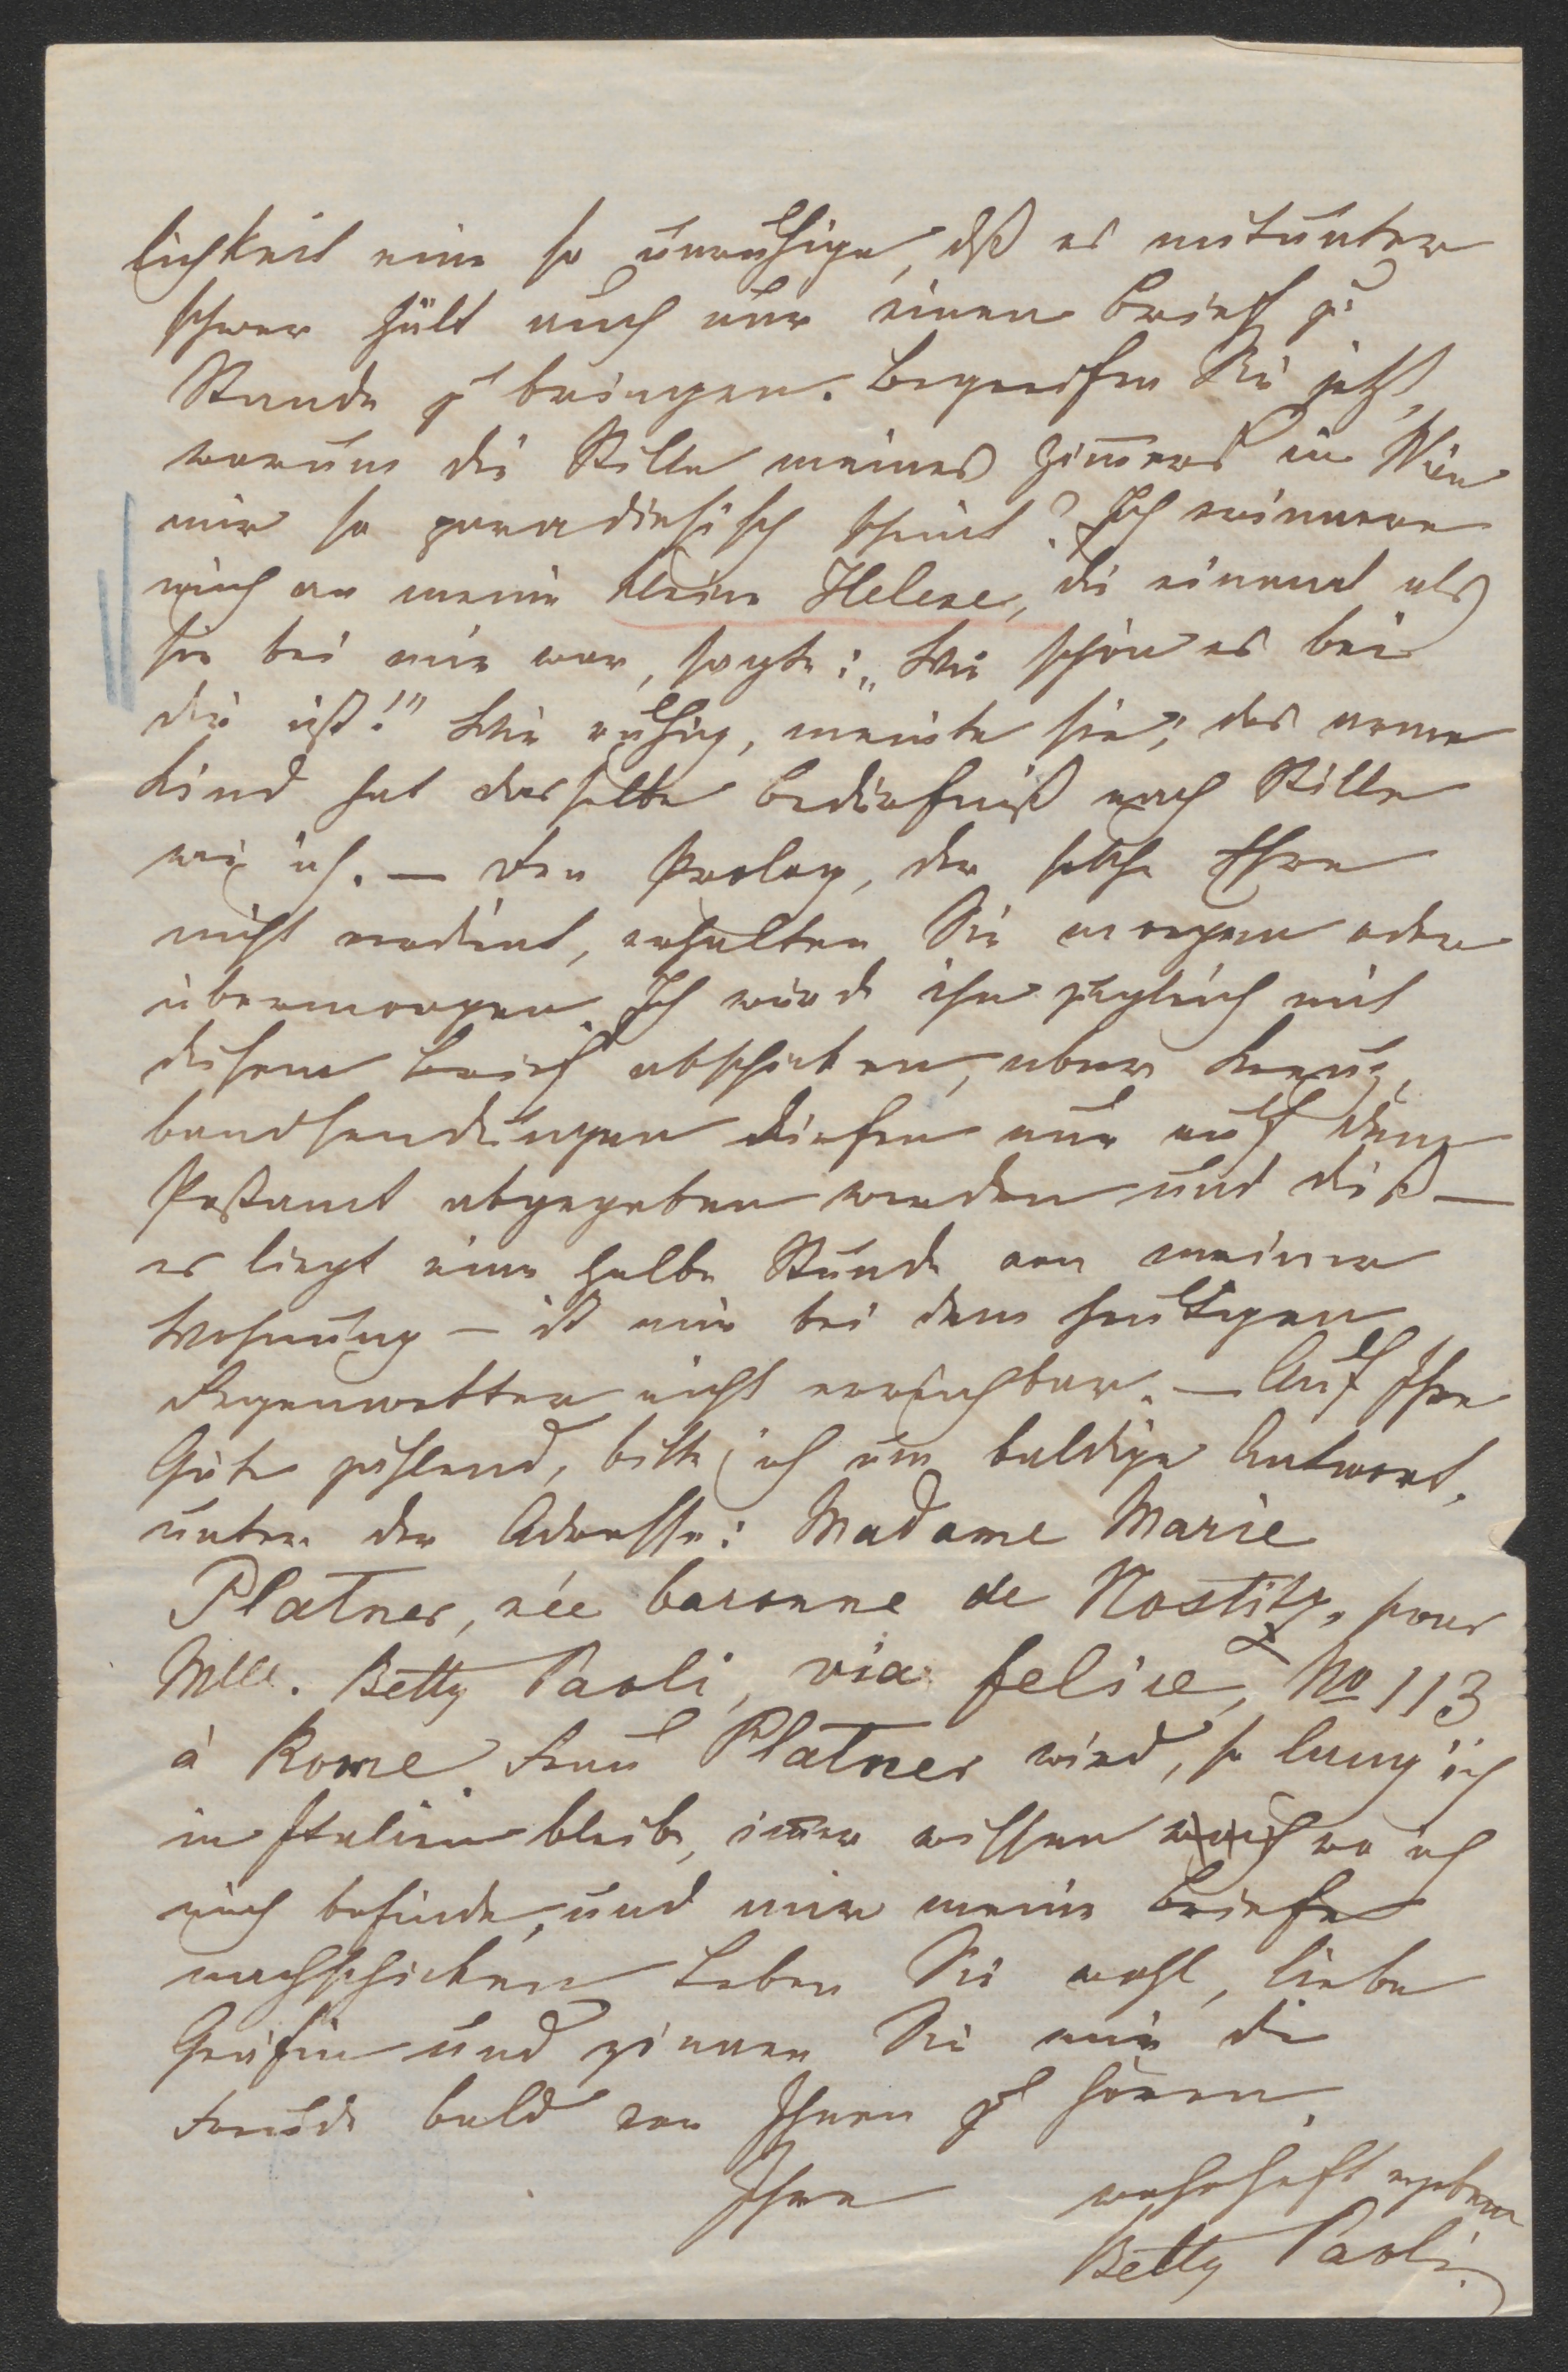 lichkeit eine so unruhige, dß es mitunter
schwer hält auch nur einen Brief zu
Stande zu bringen. Begreifen Sie jetzt,
warum die Stille meines Zim̄ers in Wien
mir so paradiesisch scheint? Ich erinnere
mich an meine kleine Helene, die einmal als
sie bei mir war, sagte: „Wie schön es bei
dir ist!" Wie ruhig, meinte sie; das arme
Kind hat dasselbe Bedürfniß nach Stille
wie ich. — Den Prolog, der solche Ehre
nicht verdient, erhalten Sie morgen oder
übermorgen. Ich würde ihn zugleich mit
diesem Brief abschicken, aber Kreuz,
bandsendungen dürfen nur auf dem
Postamt abgegeben werden und dieß —
es liegt eine halbe Stunde von meiner
Wohnung — ist mir bei dem heutigen
Regenwetter nicht erreichbar. — Auf Ihre
Güte zählend, bitte ich um baldige Antwort,
unter der Adresse: Madame Marie
Platner, née baronne de Nostitz, pour
Mlle. Betty Paoli, via felice, No 113
à Rome. Frau Platner wird, so lang ich
in Italien bleibe, im̄er wissen wo ich
mich befinde, und mir meine Briefe
nachschicken. Leben Sie wohl, liebe
Gräfin und gönnen Sie mir die
Freude bald von Ihnen zu hören.
Ihre wahrhaft ergebene
Betty Paoli.